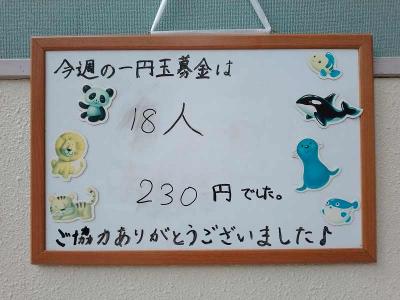 今週の一円玉募金は
18人
230円でした。
ご協力ありがとうございました♪